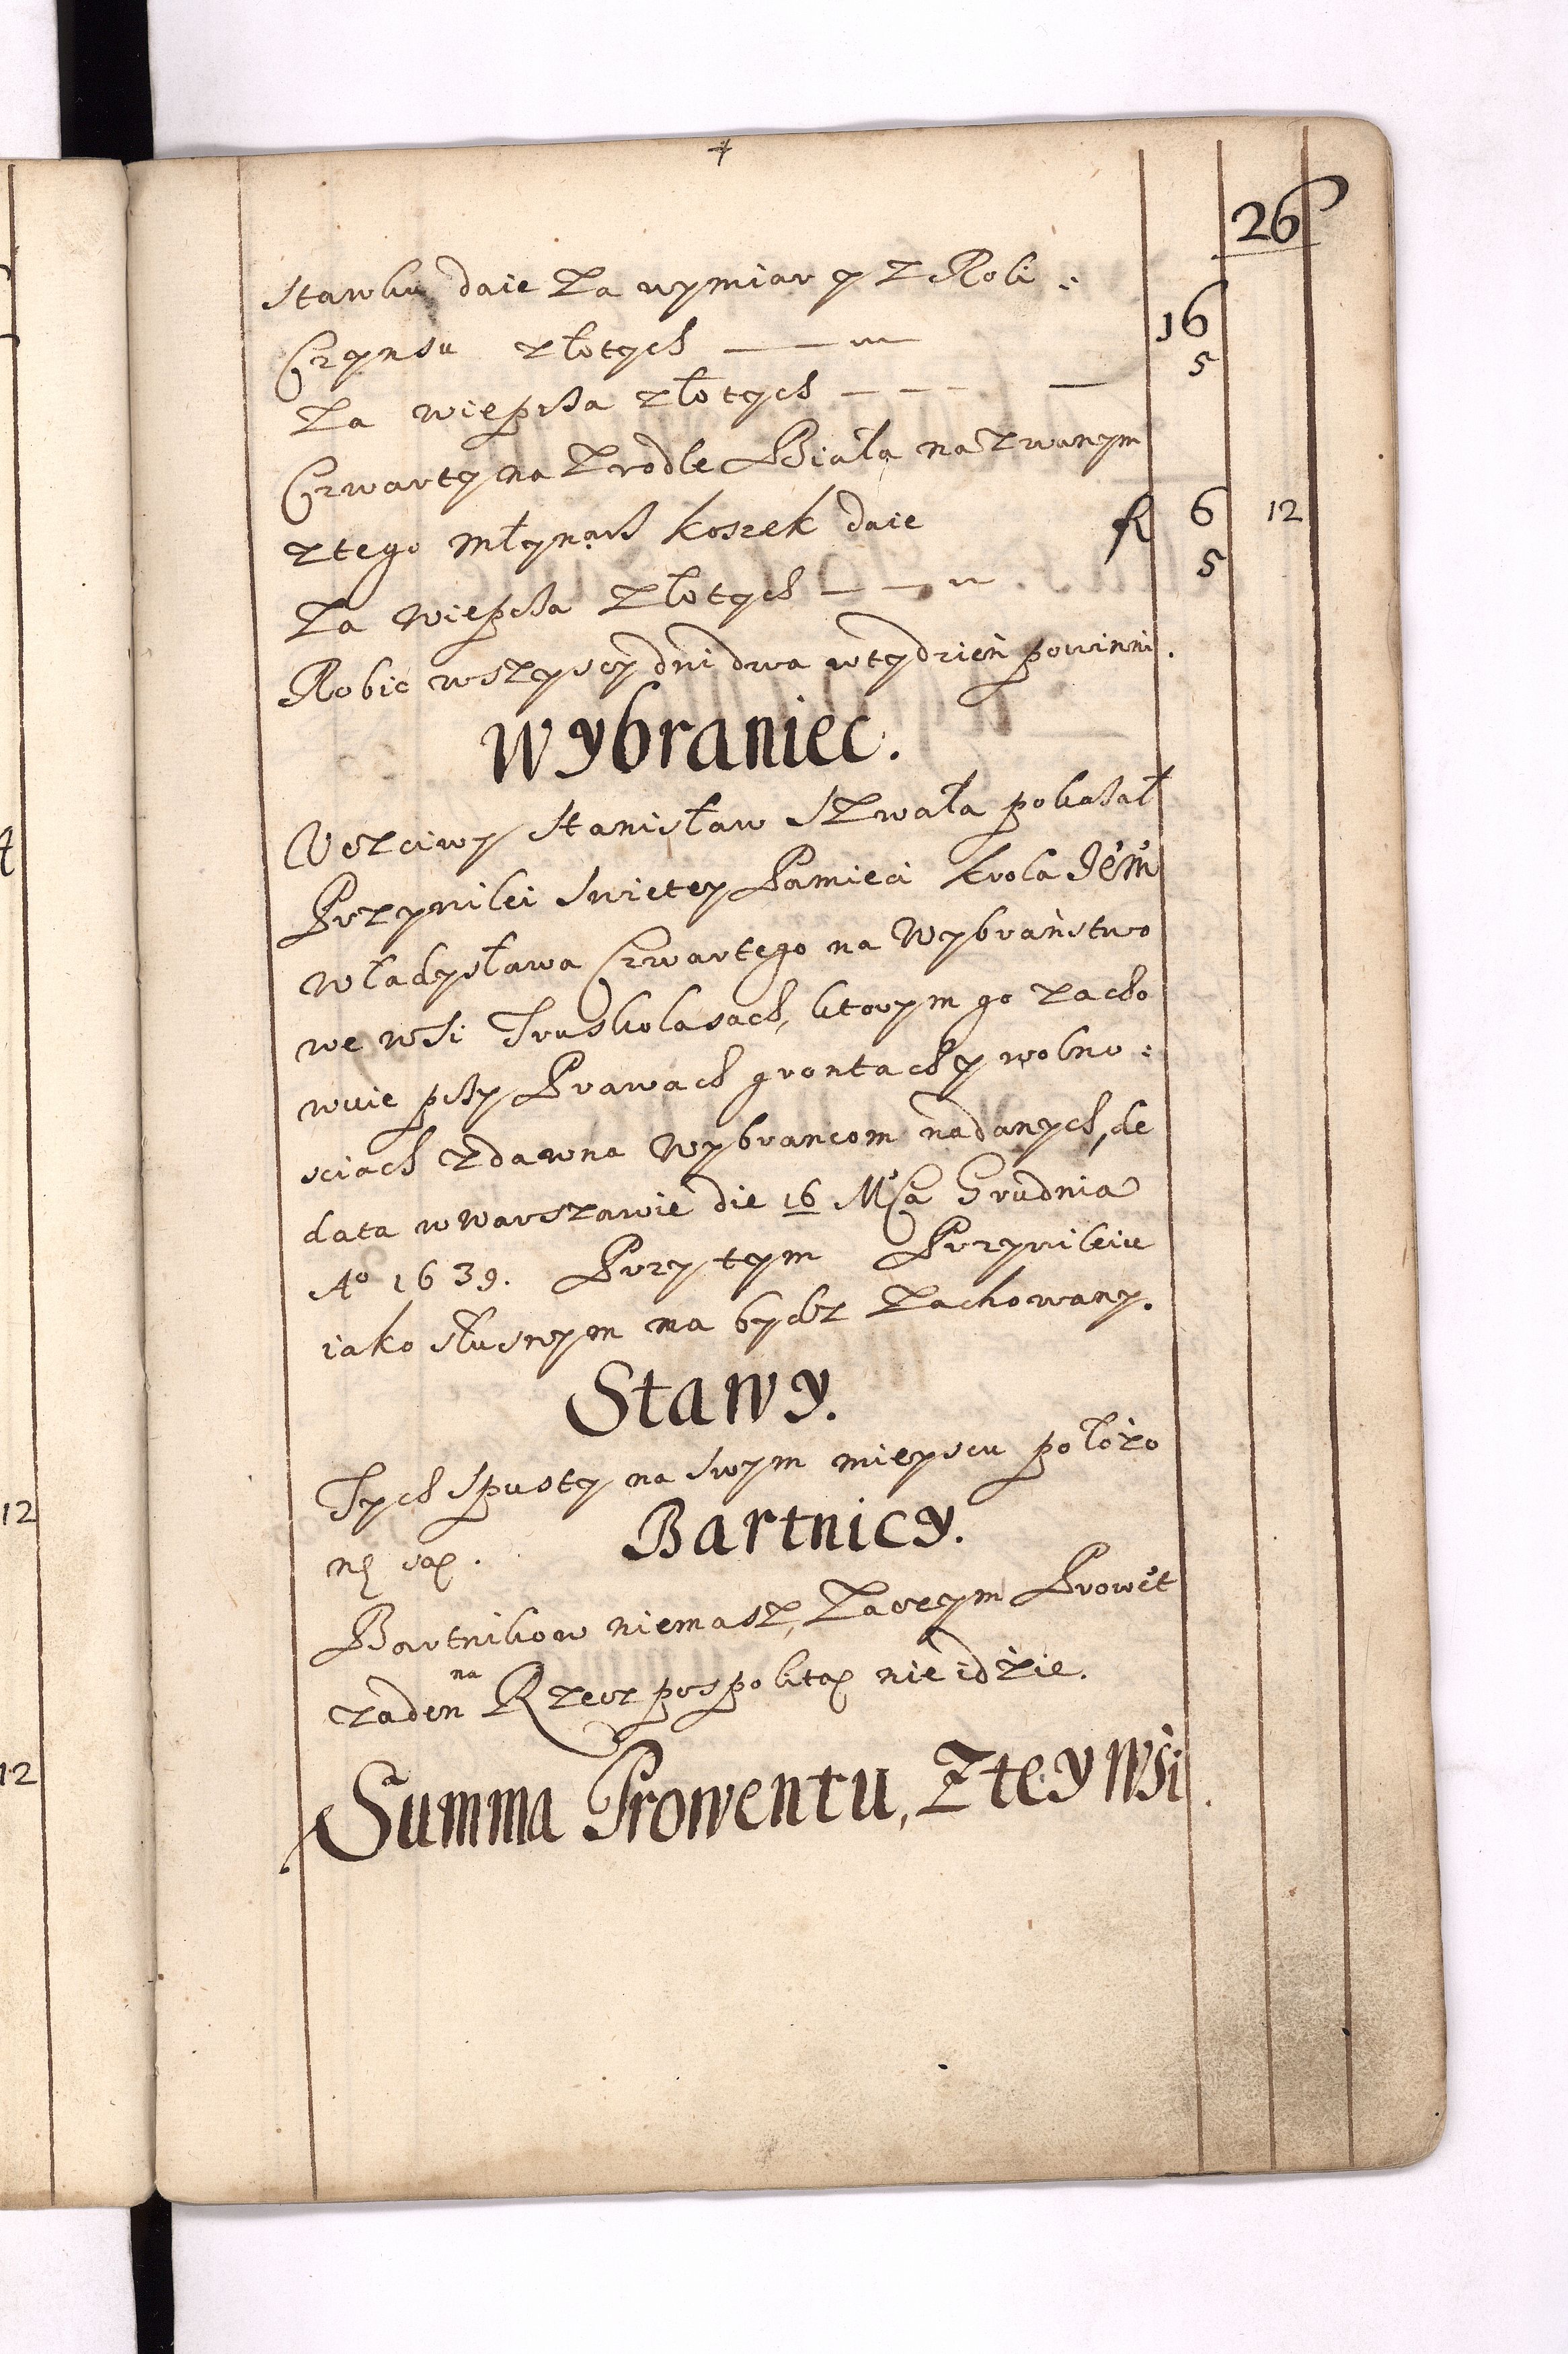 26
Stawku daie Za wymiar y Z Roli :
Czynsu złotych — 16
Za wieprza złotych — 5
Czwarty na Zrodle Biała nazwanym
z tego młynarz koszek daie fl 6 12
Za wieprza Złotych — 5
Robic wszyscy dni dwa w tydzień powinni.
Wybraniec.
Vczciwy Stanisław Szwała pokazał
Przywilei Swietey Pamięci krola Jeḿ
Władysława Czwartego na Wybraństwo
we wsi Truskolasach, ktorym go zacho
wuie przy Prawach grontach y wolno :
sciach zdawna Wybrancom nadanych, de
data w warszawie die 16 Mca Grudnia
Aº 1639. Przy tym Przywileiu
iako słusnym ma bydz Zachowany.
Stawy.
Tych Spusty na swym mieyscu położo
ne są.
Bartnicy.
Bartnikow niemasz, Zaczym Prowēt
zaden na Rzeczpospolitą nie idzie.
Summa Prowentu, Z tey Wsi.
12
12